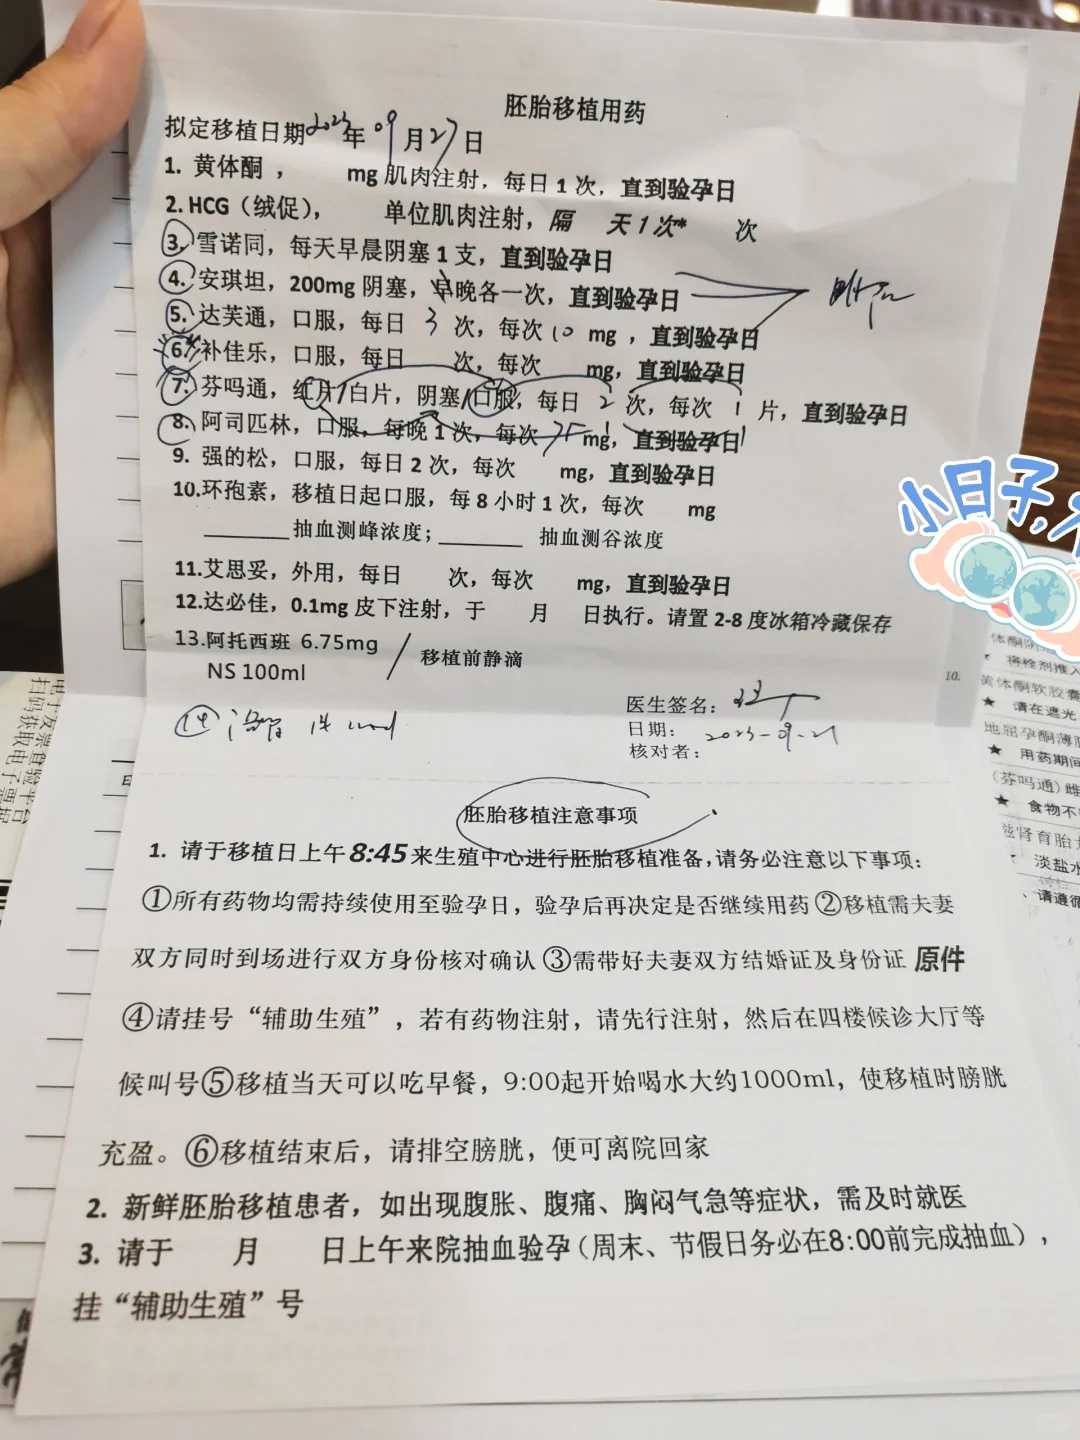 胚胎移植用药
拟定移植日期2023年09月27日
1. 黄体酮， mg 肌肉注射，每日 1 次，直到验孕日
2. HCG（绒促）， 单位肌肉注射，隔 天 1 次* 次
3. 雪诺同，每天早晨阴塞 1 支，直到验孕日
4. 安琪坦，200mg 阴塞，早晚各一次，直到验孕日
5. 达芙通，口服，每日 3 次，每次 10 mg ，直到验孕日
6. 补佳乐，口服，每日 次，每次 mg，直到验孕日
7. 芬吗通，红片/白片，阴塞/口服，每日 2 次，每次 1 片，直到验孕日
8. 阿司匹林，口服，每晚 1 次，每次 75 mg，直到验孕日
9. 强的松，口服，每日 2 次，每次 mg，直到验孕日
10.环孢素，移植日起口服，每 8 小时 1 次，每次 mg
抽血测峰浓度； 抽血测谷浓度
11.艾思妥，外用，每日 次，每次 mg，直到验孕日
12.达必佳，0.1mg 皮下注射，于 月 日执行。请置 2-8 度冰箱冷藏保存
13.阿托西班 6.75mg / 移植前静滴
NS 100ml
医生签名：
日期： 2023-09-21
核对者：
14
胚胎移植注意事项
1. 请于移植日上午 8:45 来生殖中心进行胚胎移植准备，请务必注意以下事项：
①所有药物均需持续使用至验孕日，验孕后再决定是否继续用药②移植需夫妻
双方同时到场进行双方身份核对确认③需带好夫妻双方结婚证及身份证 原件
④请挂号“辅助生殖”，若有药物注射，请先行注射，然后在四楼候诊大厅等
候叫号⑤移植当天可以吃早餐，9:00起开始喝水大约1000ml，使移植时膀胱
充盈。⑥移植结束后，请排空膀胱，便可离院回家
2. 新鲜胚胎移植患者，如出现腹胀、腹痛、胸闷气急等症状，需及时就医
3. 请于 月 日上午来院抽血验孕（周末、节假日务必在8:00前完成抽血），
挂“辅助生殖”号
小日子,
10.
将栓剂推入
黄体酮软胶囊
★ 请在遮光
地屈孕酮薄膜
★ 用药期间
（芬吗通）雌
★ 食物不
滋肾育胎
淡盐水
、请遵循
电子发票查验平台
扫码获取电子票据